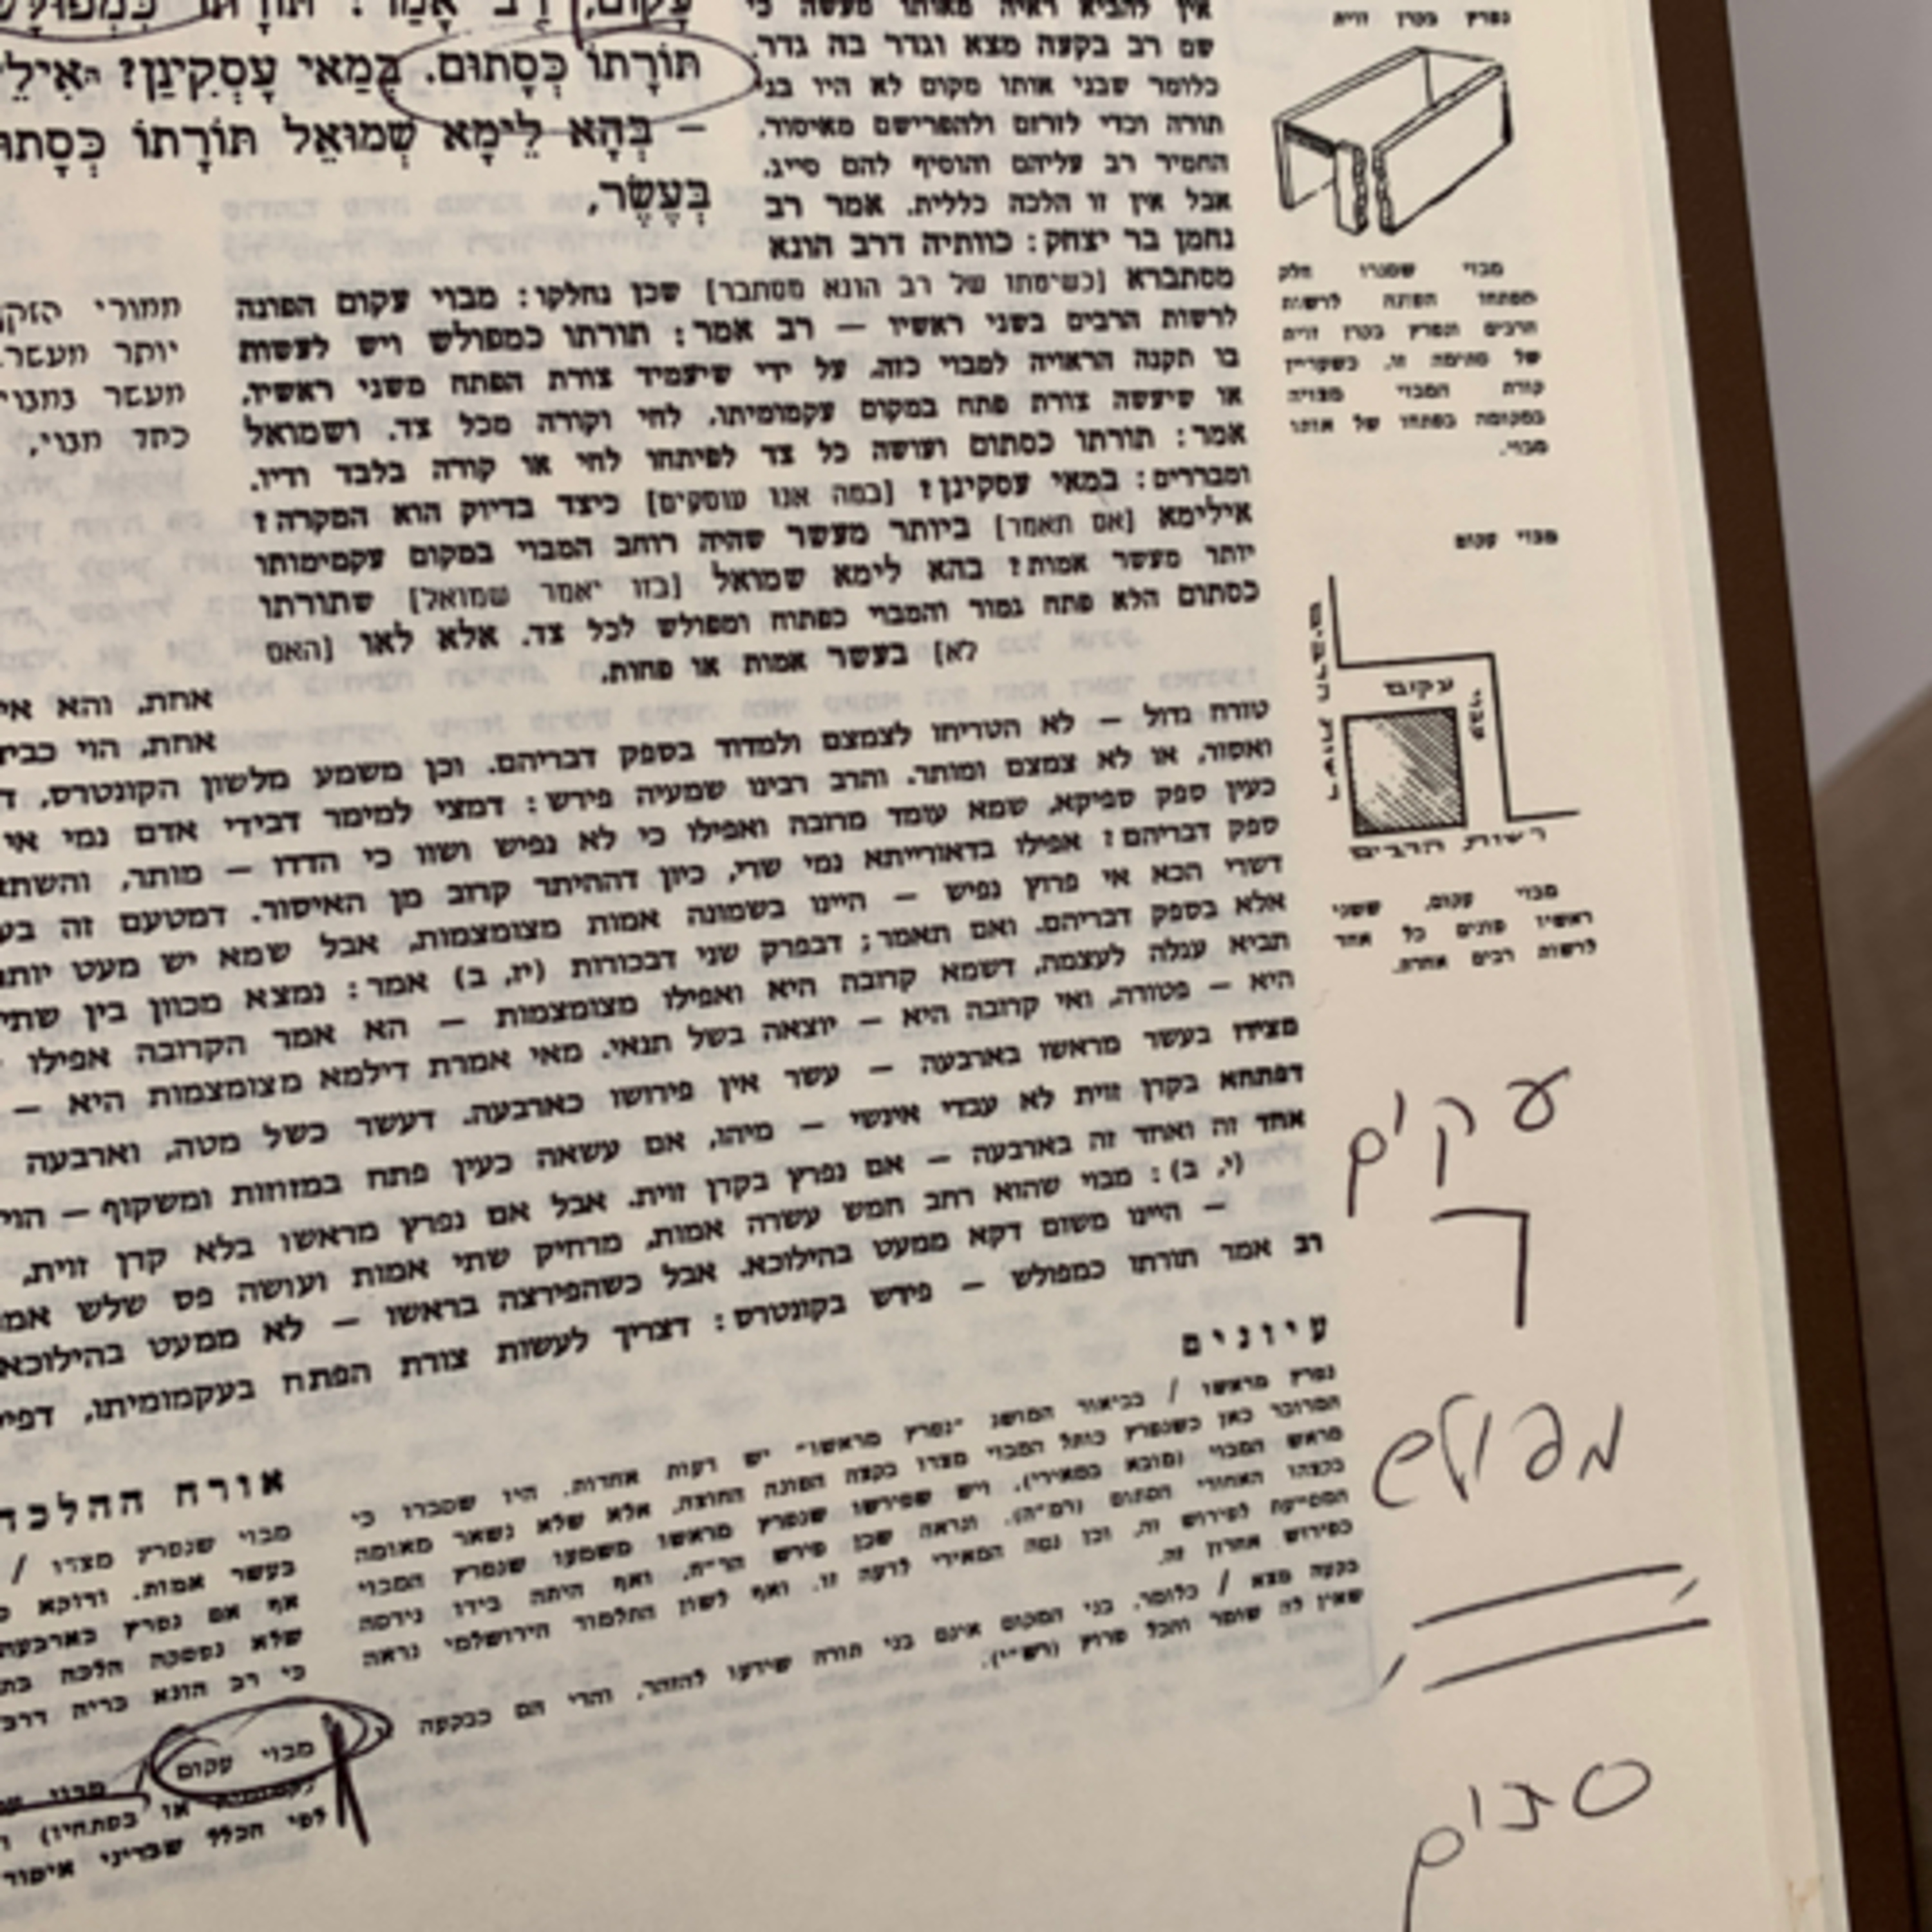 תּוֹרָתוֹ כְּסָתוּם. בְּמַאי עָסְקִינַן?
– בְּהָא לֵימָא שְׁמוּאֵל תּוֹרָתוֹ
בְּעֶשֶׂר,
אין להביא ראיה מאותו מעשה כי
שם רב בקעה מצא וגדר בה גדר.
כלומר שבני אותו מקום לא היו בני
תורה וכדי לזרזם ולהפרישם מאיסור,
החמיר רב עליהם והוסיף להם סייג.
אבל אין זו הלכה כללית. אמר רב
נחמן בר יצחק: כוותיה דרב הונא
מסתברא [כשיטתו של רב הונא מסתבר] שכן נחלקו: מבוי עקום הפונה
לרשות הרבים בשני ראשיו – רב אמר: תורתו כמפולש ויש לעשות
בו תקנה הראויה למבוי כזה, על ידי שיעמיד צורת הפתח משני ראשיו,
או שיעשה צורת פתח במקום עקמומיתו, לחי וקורה מכל צד. ושמואל
אמר: תורתו כסתום ועושה כל צד לפיתחו לחי או קורה בלבד ודיו.
ומבררים: במאי עסקינן? [במה אנו עוסקים] כיצד בדיוק הוא המקרה?
אילימא [אם תאמר] ביותר מעשר שהיה רוחב המבוי במקום עקמימותו
יותר מעשר אמות? בהא לימא שמואל [בזו יאמר שמואל] שתורתו
כסתום הלא פתח גמור והמבוי כפתוח ומפולש לכל צד. אלא לאו [האם
לא] בעשר אמות או פחות,
יותר מעשר
אחת, והא
אחת, הוי
טורח גדול – לא הטריחו לצמצם ולמדוד בספק דבריהם. וכן משמע מלשון הקונטרס,
ואסור, או לא צמצם ומותר. והרב רבינו שמעיה פירש: דמצי למימר דבידי אדם נמי אי
כעין ספק ספיקא, שמא עומד מרובה ואפילו כי לא נפיש ושוו כי הדדו – מותר,
ספק דבריהם? אפילו בדאורייתא נמי שרי, כיון דההיתר קרוב מן האיסור. דמטעם זה
דשרי הכא אי פרוץ נפיש – היינו בשמונה אמות מצומצמות, אבל שמא יש מעט
אלא בספק דבריהם. ואם תאמר; דבפרק שני דבכורות (יז, ב) אמר: נמצא מכוון בין
תביא עגלה לעצמה, דשמא קרובה היא ואפילו מצומצמות – הא אמר הקרובה אפילו
היא – פטורה, ואי קרובה היא – יוצאה בשל תנאי. מאי אמרת דילמא מצומצמות היא –
מצידו בעשר מראשו בארבעה – עשר אין פירושו כארבעה. דעשר כשל מטה, וארבעה
דפתחא בקרן זוית לא עבדי אינשי – מיהו, אם עשאה כעין פתח במזוזות ומשקוף –
אחד זה ואחד זה בארבעה – אם נפרץ בקרן זוית. אבל אם נפרץ מראשו בלא קרן זוית,
(י, ב): מבוי שהוא רחב חמש עשרה אמות, מרחיק שתי אמות ועושה פס שלש
– היינו משום דקא ממעט בהילוכא. אבל כשהפירצה בראשו – לא ממעט בהילוכא
רב אמר תורתו כמפולש – פירש בקונטרס: דצריך לעשות צורת הפתח בעקמומיתו,
עיונים
נפרץ מראשו / בביאור המושג "נפרץ מראשו" יש דעות אחדות. היו שסברו כי
המדובר כאן כשנפרץ כותל המבוי מצדו בקצה הפונה החוצה, אלא שלא נשאר מאומה
מראש המבוי (מובא במאירי), ויש שפירשו שנפרץ מראשו משמעו שנפרץ המבוי
בקצהו האחורי הסתום (רמ"ה). ונראה שכן פירש הר"ח, ואף היתה בידו גירסה
המסייעת לפירוש זה, וכן נטה המאירי לדעה זו. ואף לשון התלמוד הירושלמי נראה
כפירוש אחרון זה.
בקעה מצא / כלומר, בני המקום אינם בני תורה שידעו להזהר, והרי הם כבקעה
שאין לה שומר והכל פרוץ (רש"י).
אורח ההלכה
מבוי שנפרץ מצדו /
בעשר אמות. ודוקא
אף אם נפרץ
שלא נפסקה הלכה
כי רב הונא בריה
מבוי עקום
או בפתחיו)
לפי הכלל שבדיני
נפרץ בקרן זוית
מבוי שסגרו חלק
מפתחו הפונה לרשות
הרבים ונפרץ בקרן זוית
של סתימה זו, כשעדיין
קורת המבוי מצויה
במקומה בפתחו של אותו
מבוי.
מבוי עקום
רשות הרבים
עקום
מבוי
רשות הרבים
מבוי עקום, ששני
ראשיו פונים כל אחד
לרשות רבים אחרת.
עקום
מפולש
סתום